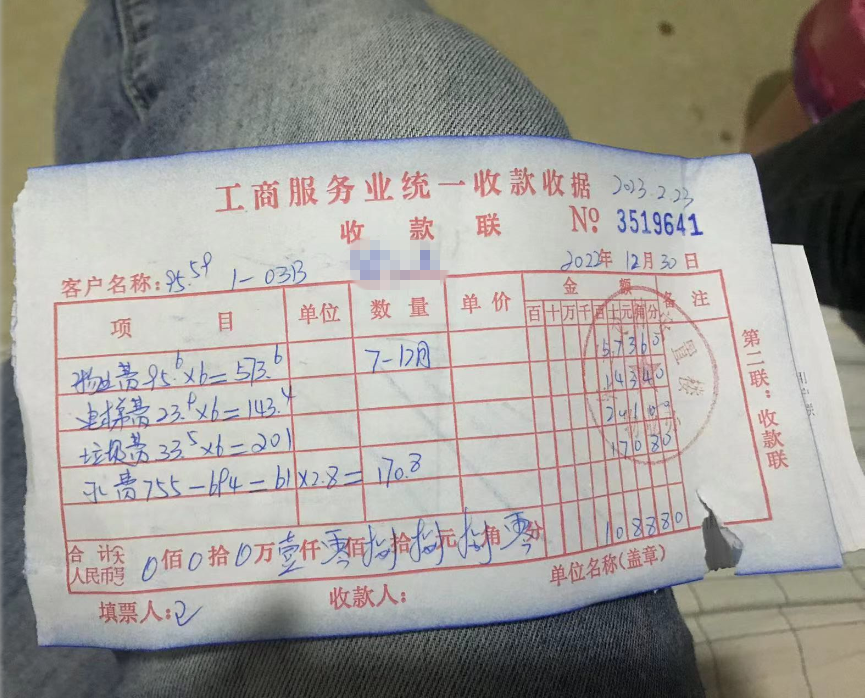 工商服务业统一收款收据 2023.2.23
收款联 № 3519641
客户名称: 95.59 1-03B 2022年12月30日
项目 单位 数量 单价 金额 备注
百十万千百十元角分
物业费95.6×6=573.6 7-12月 57360
电梯费23.9×6=143.4 14340
垃圾费33.5×6=201 20100
水费755-694=61×2.8=170.8 17080
合计 人民币 大 号 0佰0拾0万壹仟零佰捌拾捌元捌角零分 108880
填票人: 收款人: 单位名称(盖章)
第二联:收款联